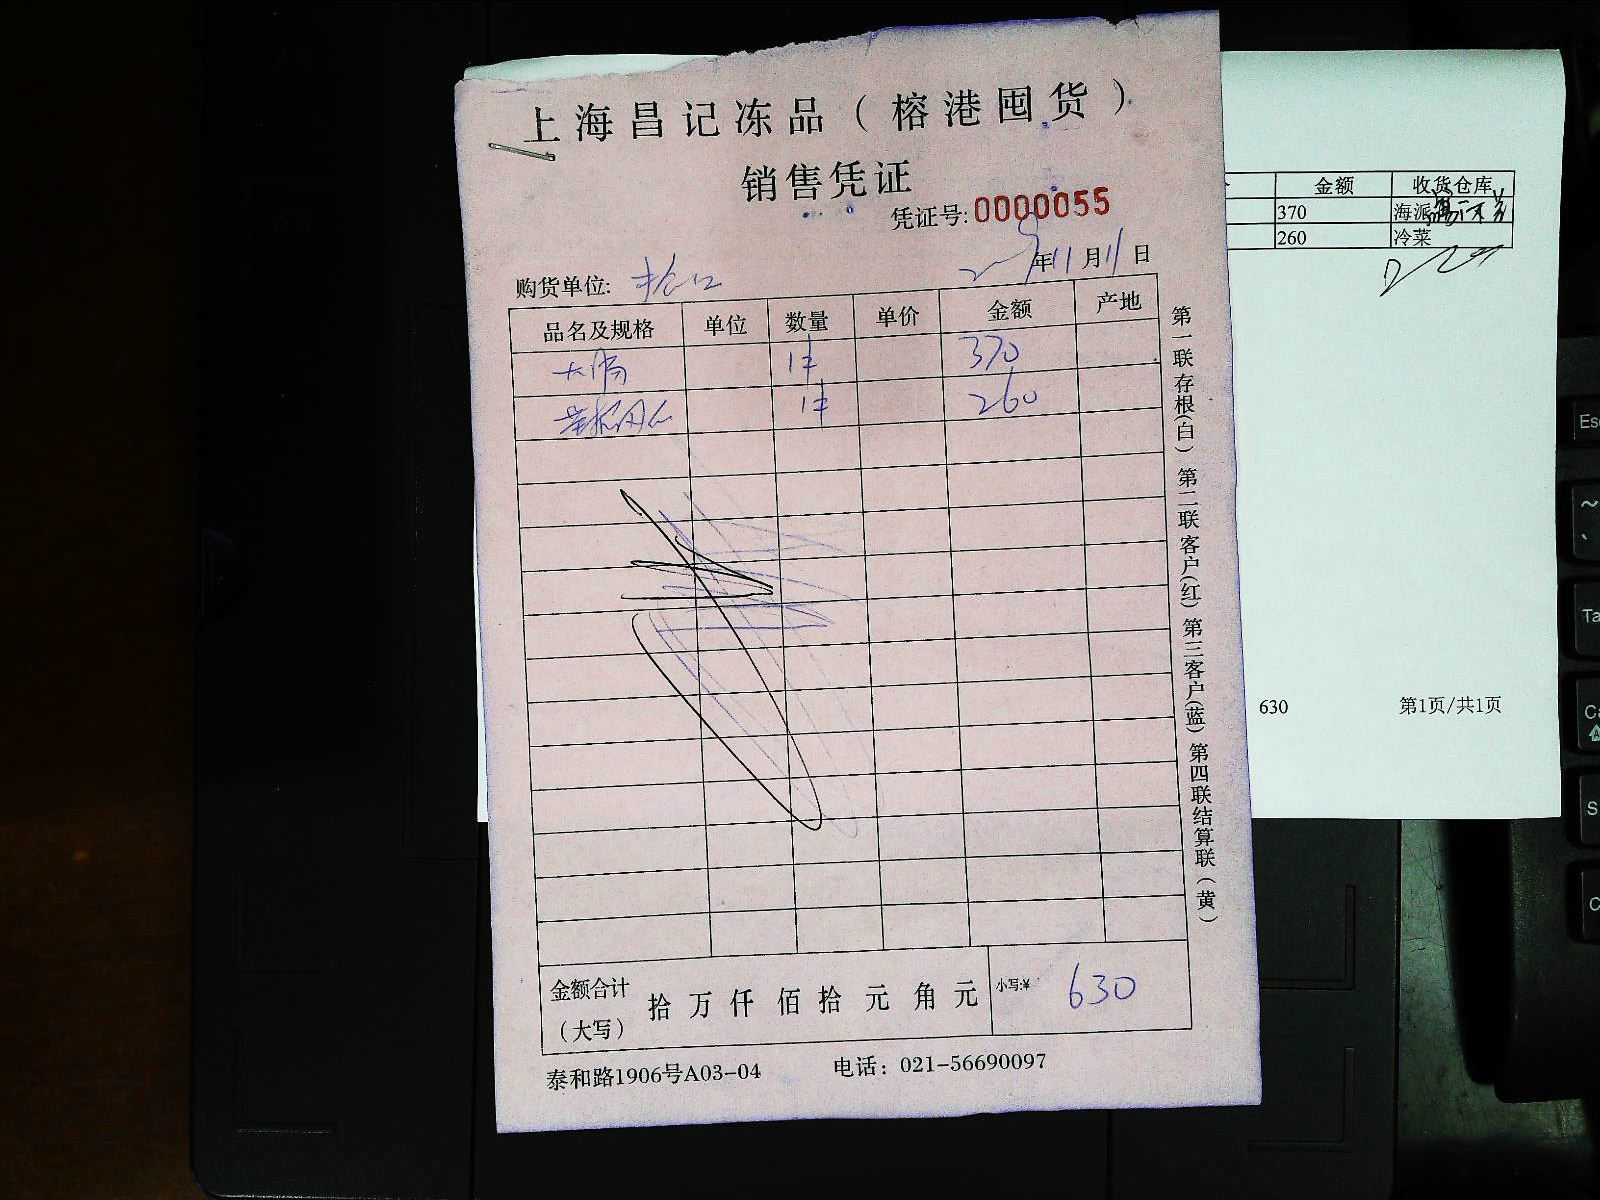 上海昌记冻品（榕港囤货）
销售凭证
凭证号:0000055
年11月11日
购货单位:
品名及规格 单位 数量 单价 金额 产地
大肠 1件 370
1件 260
金额合计（大写） 拾 万 仟 佰 拾 元 角 元 小写:¥ 630
泰和路1906号A03-04 电话：021-56690097
第一联存根(白) 第二联客户(红) 第三客户(蓝) 第四联结算联(黄)
金额 收货仓库
370 海派
260 冷菜
630 第1页/共1页
Esc
~
S